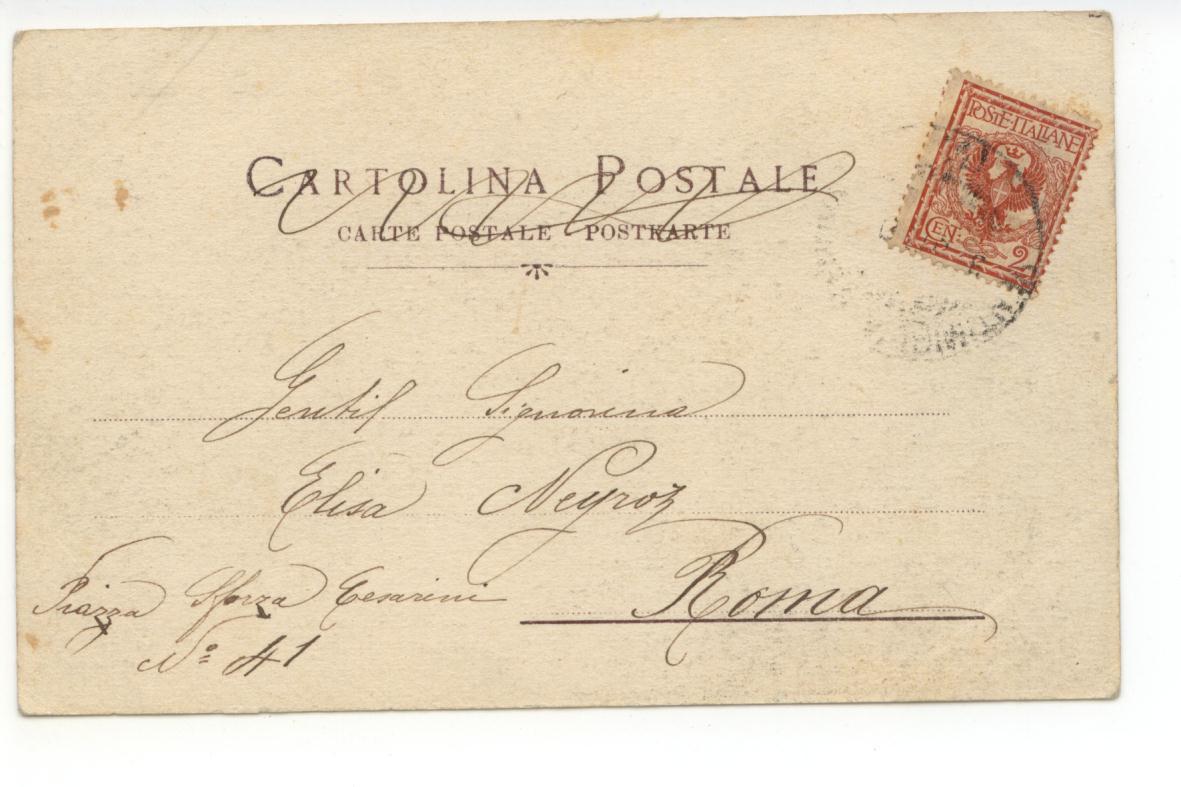 CARTOLINA POSTALE
CARTE POSTALE POSTKARTE
POSTE·ITALIANE
CEN: 2
Gentil Signorina
Elisa Neyroz
Roma
Piazza Sforza Cesarini
No 41